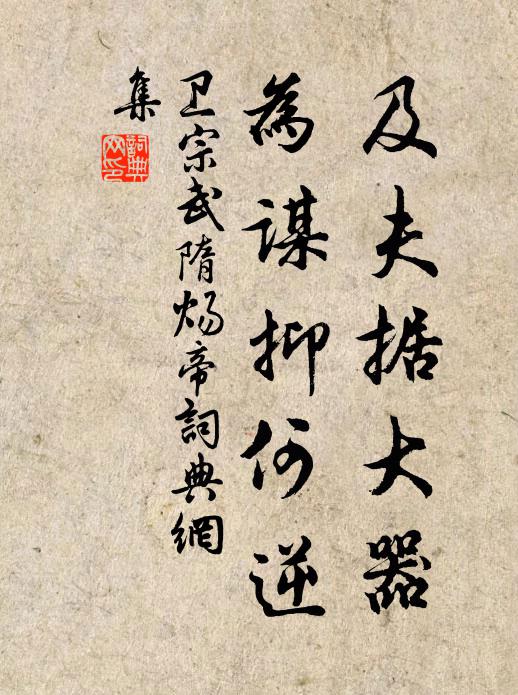 及夫据大器
為謀抑何逆
卫宗武隋炀帝詞典網
集
詞典網印